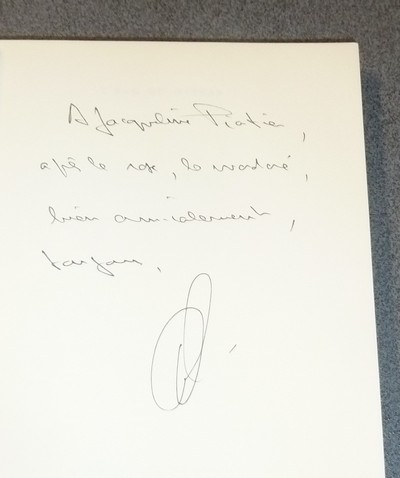 A Jacqueline Piatier,
après le rose, le mordoré,
bien amicalement,
toujours,